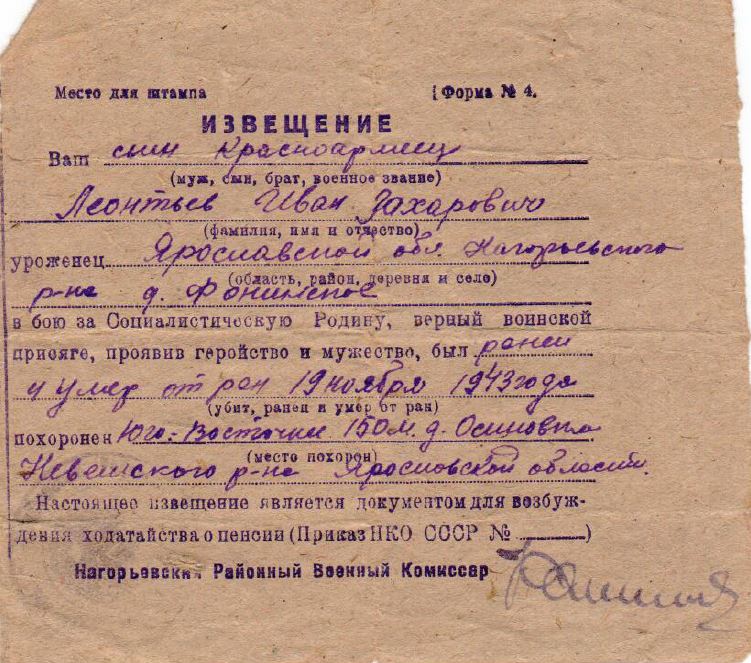 Место для штампа
Форма № 4.
ИЗВЕЩЕНИЕ
Ваш сын красноармеец
(муж, сын, брат, военное звание)
Леонтьев Иван Захарович
(фамилия, имя и отчество)
уроженец Ярославской обл. Нагорьевского
(область, район, деревня и село)
р-на д. Фонинское
в бою за Социалистическую Родину, верный воинской
присяге, проявив геройство и мужество, был ранен
и умер от ран 19 ноября 1943 года
(убит, ранен и умер от ран)
похоронен Юго-Восточнее 150 м. д. Осиновка
(место похорон)
р-на Ярославской области.
Настоящее извещение является документом для возбуж-
дения ходатайства о пенсии (Приказ НКО СССР №)
Нагорьевский Районный Военный Комиссар